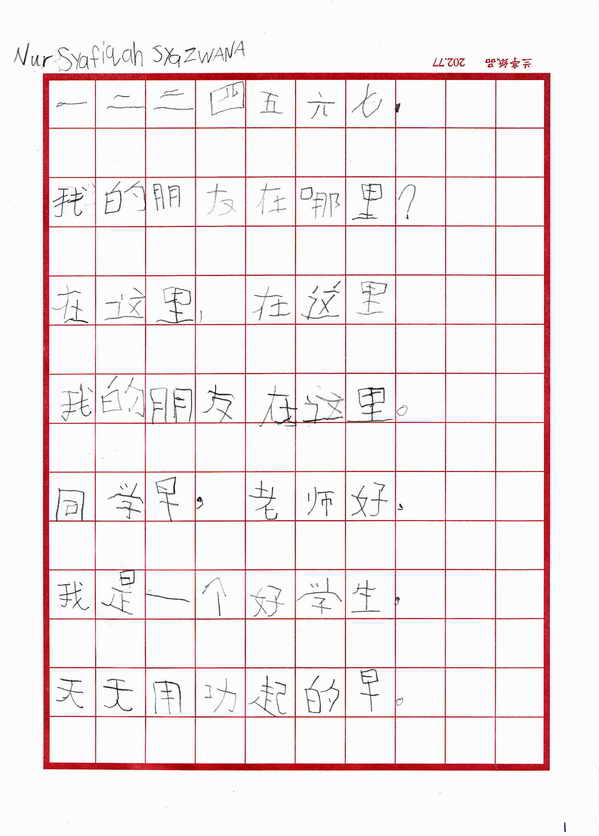 Nur Syafiqah SYAZWANA
兰亭纸品 202.77
一二三四五六七，
我的朋友在哪里？
在这里，在这里
我的朋友在这里。
同学早，老师好，
我是一个好学生，
天天用功起的早。